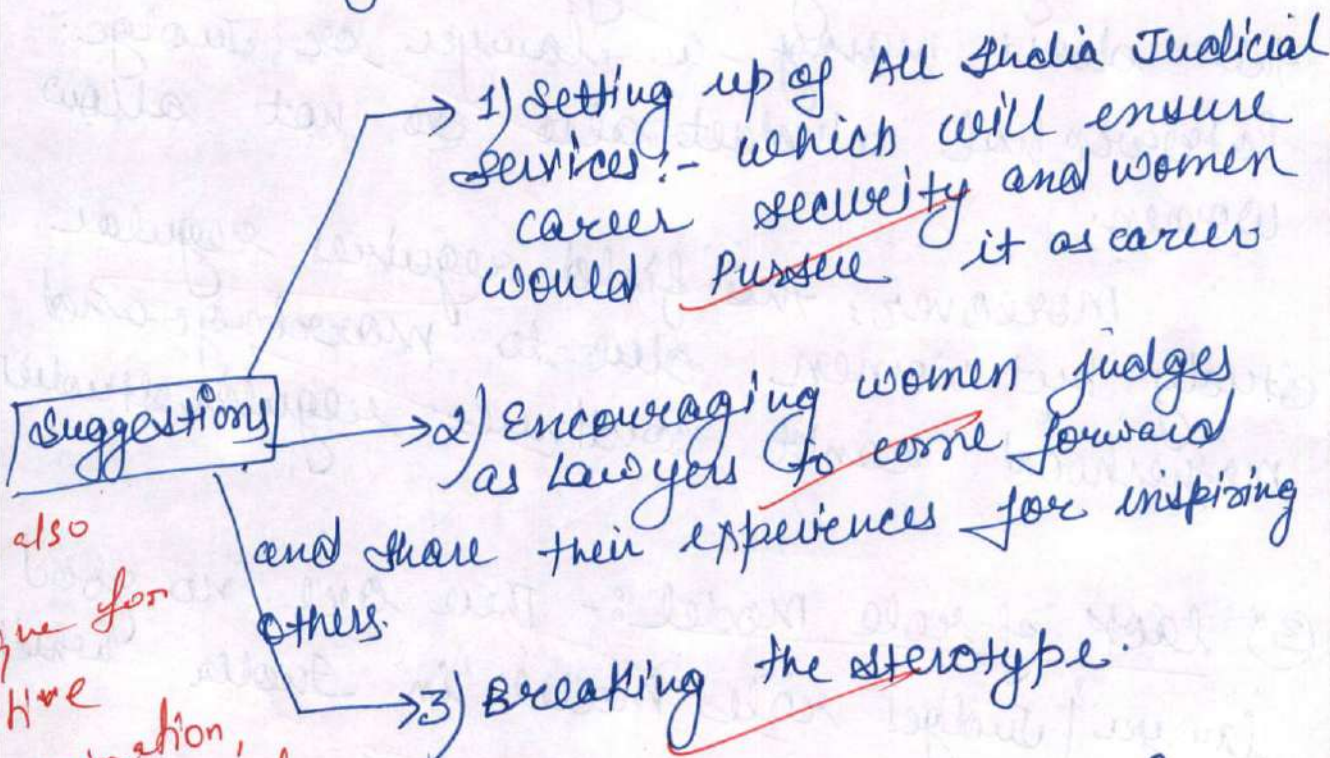 1) Setting up of All India Judicial
services:- which will ensure
career security and women
would Pursue it as career
Suggestions
2) Encouraging women judges
as Lawyers to come forward
and share their experiences for inspiring
others.
3) Breaking the sterotype.
also
for